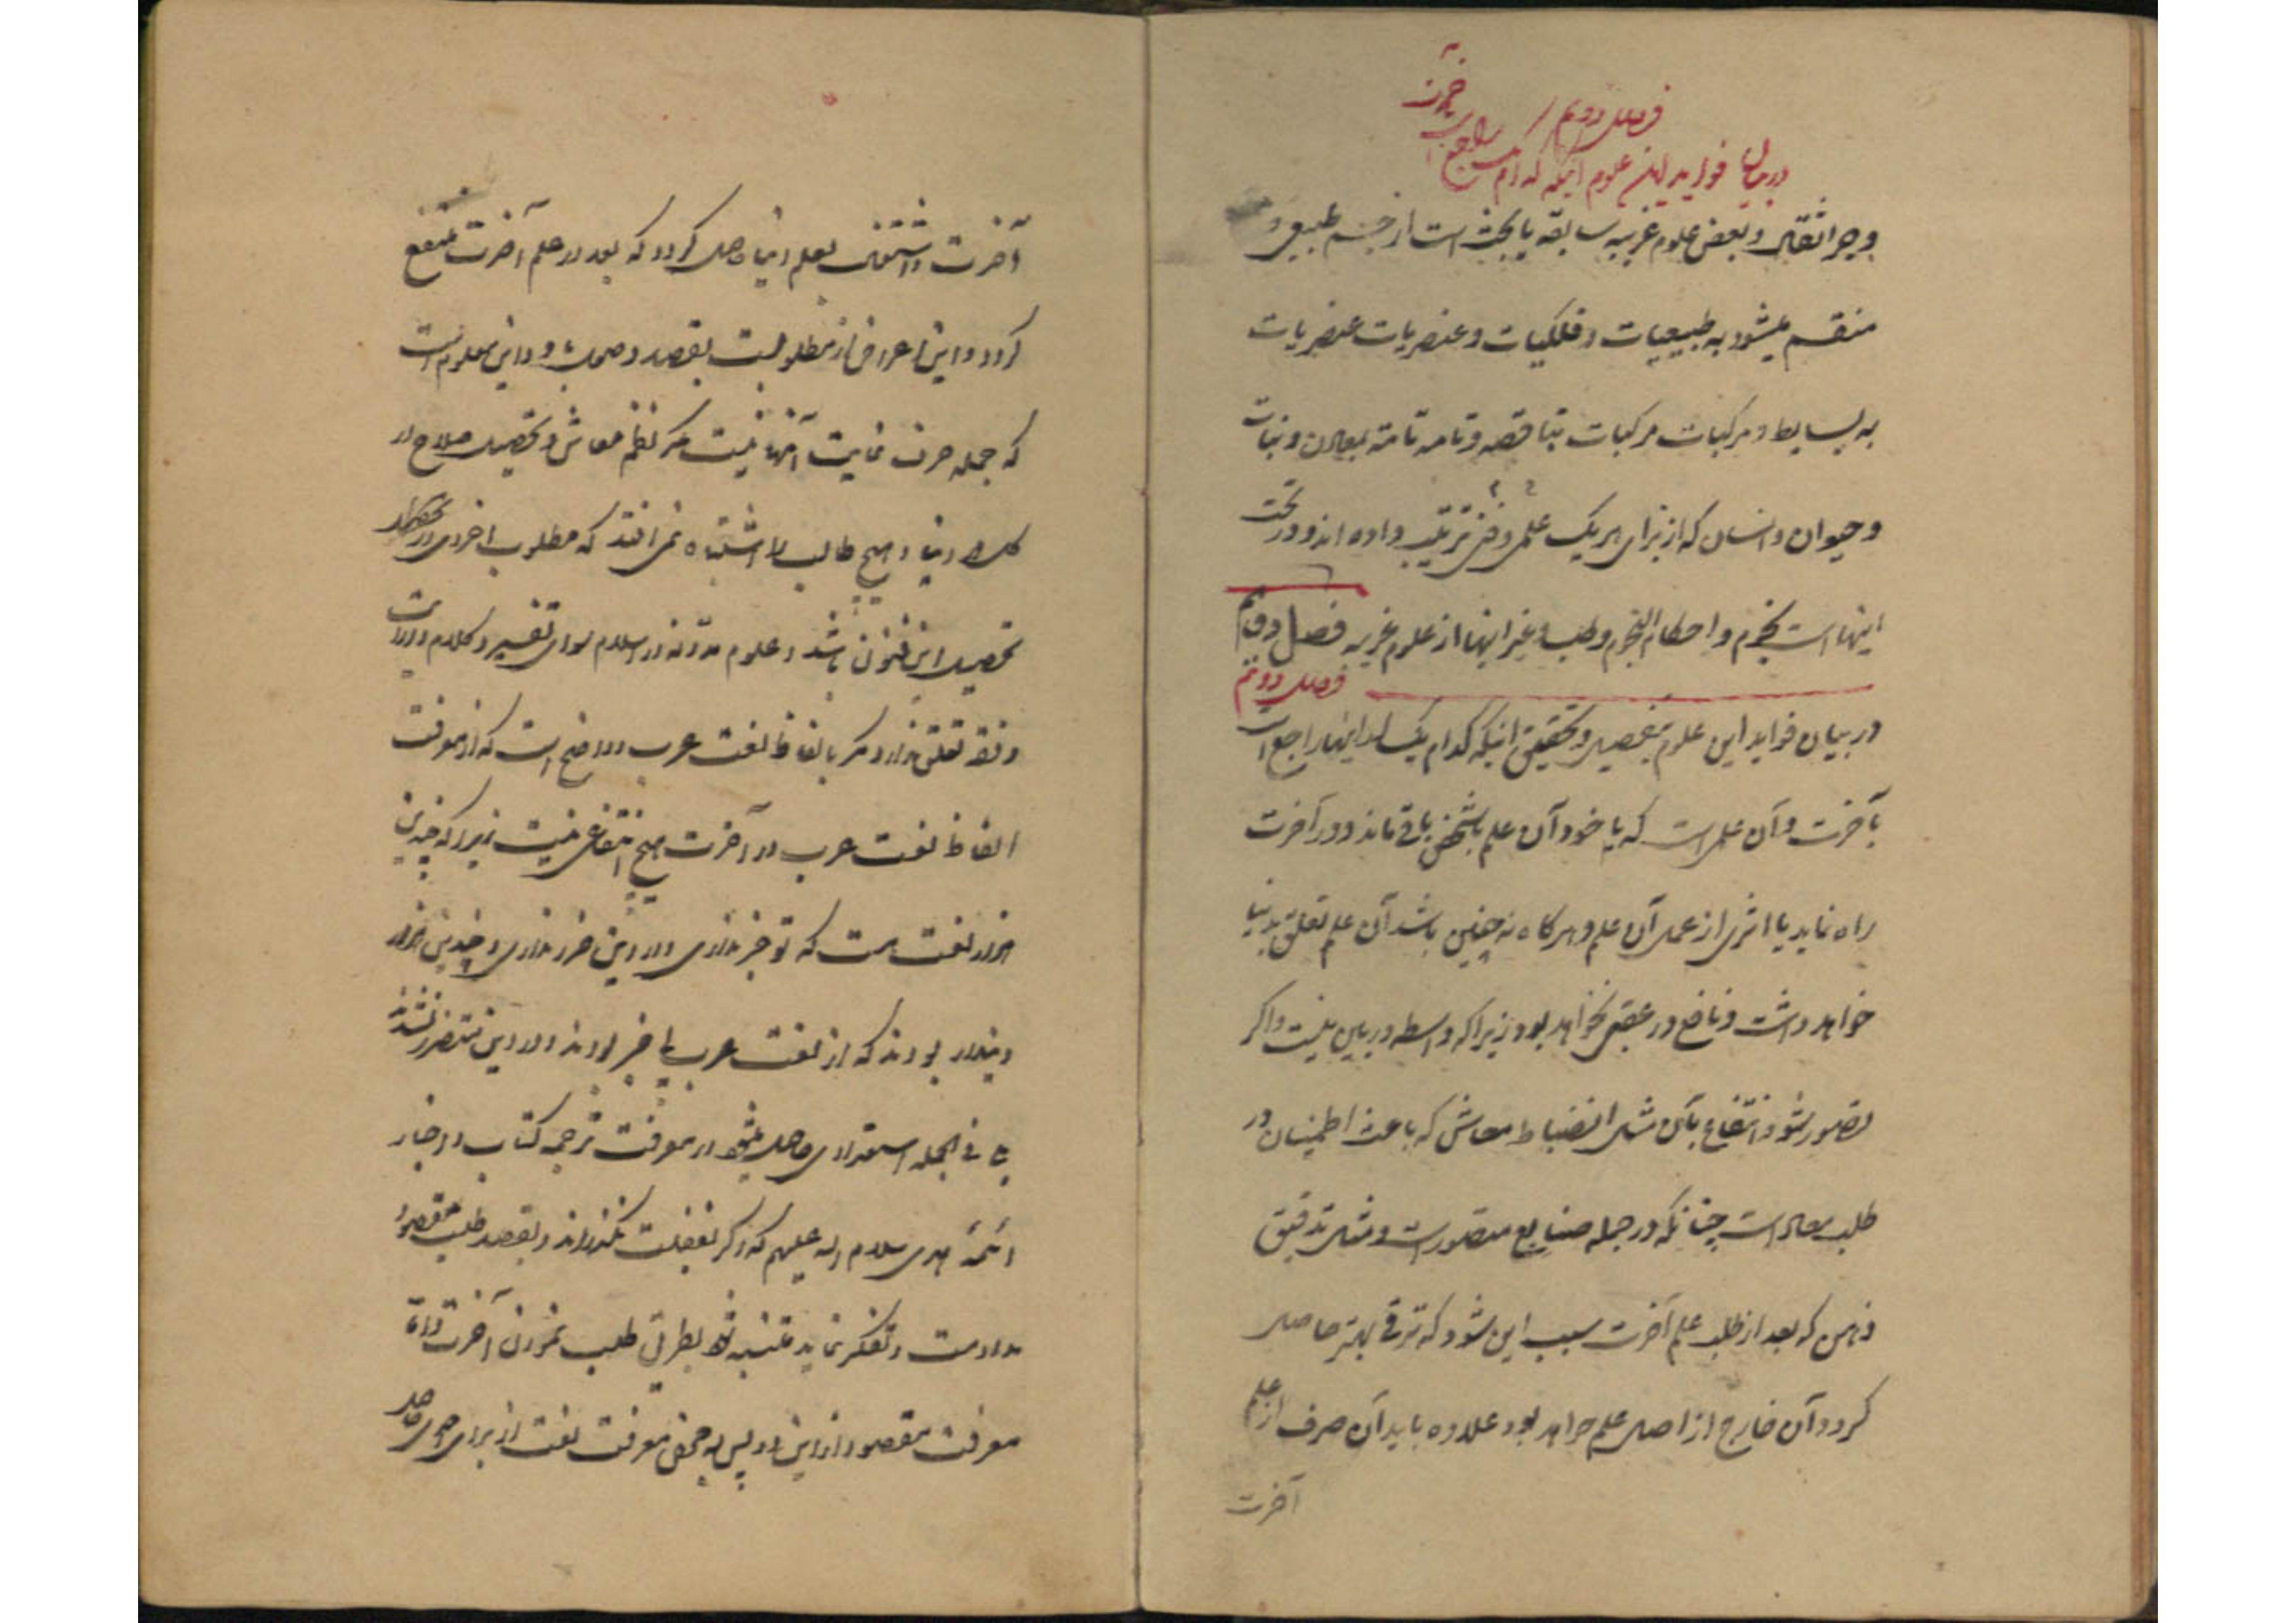 فصل دویم
در بیان فواید این علوم اینکه کدام یک راجع است بآخرت
و جر اثقال و بعض علوم غریبه سابقه یا بحث است از جسم طبیعی و
منقسم میشود به طبیعیات و فلکیات و عنصریات عنصریات
به بسایط و مرکبات مرکبات بناقصه و تامه تامه بمعادن و نبات
و حیوان و انسان که از برای هر یک علمی و فنی ترتیب داده اند و در تحت
اینهاست نجوم و احکام النجوم و طب و غیر اینها از علوم غریبه فصل دویم
فصل دویم
در بیان فواید این علوم بتفصیل و تحقیق اینکه کدام یک از اینها راجع است
بآخرت و آن علمی است که یا خود آن علم با شخص باقی ماند و در آخرت
راه نماید یا اثری از عمل آن علم و هر گاه نه چنین باشد آن علم تعلق بدنیا
خواهد داشت و نافع در عقبی نخواهد بود زیرا که واسطه در بین نیست و اگر
تصور شود انتفاع بآن مثل انضباط معاش که باعث اطمینان در
طلب معاد است چنانکه در جمله صنایع متصور است و مثل تدقیق
ذهن که بعد از طلب علم آخرت سبب این شود که ترقی بهتر حاصل
کردد آن خارج از اصل علم خواهد بود علاوه باید آن صرف از علم
آخرت
آخرت و اشتغال بعلم دنیا حاصل کردد که بعد در علم آخرت منتفع
کردد و این اعراض از مطلوبست بقصد وصول باو و این معلوم است
که جمله حرف غایت آنها نیست مکر نظم معاش و تحصیل صلاح در
کار دنیا و هیچ طالب را اشتباه نمی افتد که مطلوب اخروی در
تحصیل این فنون باشد و علوم مدونه در اسلام سوای تفسیر و کلام و درایت
و فقه تعلق ندارد مکر بالفاظ لغت عرب و واضح است که از معرفت
الفاظ لغت عرب در آخرت هیچ انتفاعی نیست زیرا که چندین
هزار لغت هست که تو خبر نداری و در دین ضرر نداری و چندین هزار
دیندار بودند که از لغت عرب بی خبر بودند و در دین متضرر نشدند
بلی فی الجمله استعدادی حاصل میشود در معرفت ترجمه کتاب و اخبار
ائمه هدی سلام الله علیهم که اکر بغفلت نکذراند و بقصد طلب مقصود
مداومت و تفکر نماید متنبه شود بطریق طلب نمودن آخرت و اما
معرفت مقصود از این راه پس به محض معرفت لغت از برای حاصل